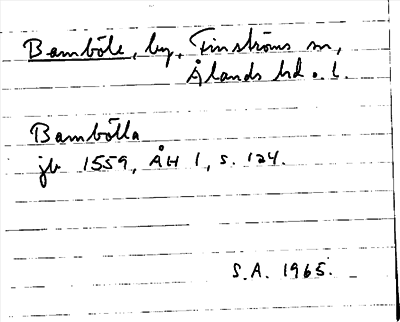 Bamböle, by, Finströms sn,
Ålands hd. o. l.
Bambölla
jb 1559, ÅH 1, s. 124.
S.A. 1965.